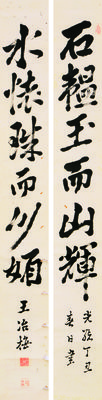 石韞玉而山輝
光緒丁丑
春日
水懷珠而川媚
王冶梅